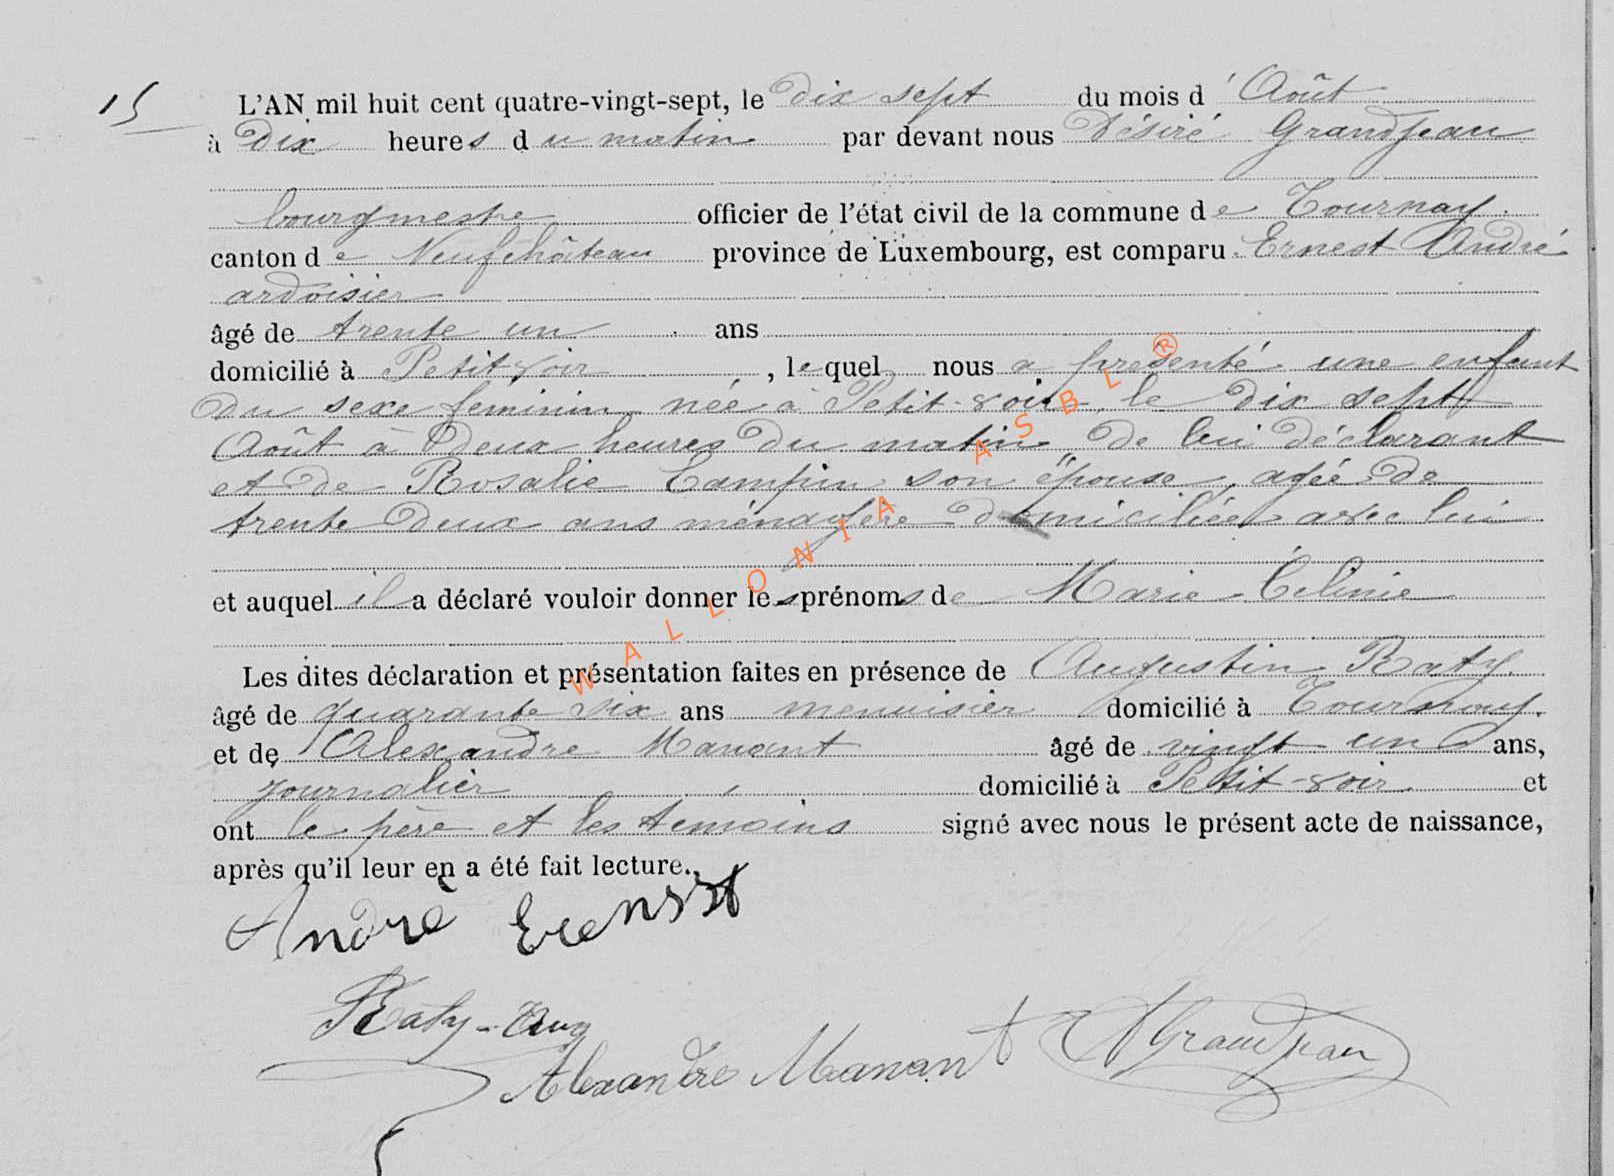 15
L'AN mil huit cent quatre-vingt-sept, le dix sept du mois d'Août
à dix heures du matin par devant nous Désiré Grandjean
bourgmestre officier de l'état civil de la commune de Tournay
canton de Neufchâteau province de Luxembourg, est comparu Ernest André
ardoisier
âgé de trente un ans
domicilié à Petitvoir, lequel nous a presenté une enfant
du sexe feminin née à Petit-voir, le dix sept
Août à deux heures du matin de lui déclarant
et de Rosalie son épouse, agée de
trente deux ans ménagère domiciliée avec lui
et auquel il a déclaré vouloir donner les prénoms de Marie Célinie
Les dites déclaration et présentation faites en présence de Augustin Raty
âgé de quarante six ans menuisier domicilié à Tournay.
et de Alexandre Manant âgé de vingt un ans,
journalier domicilié à Petit-voir et
ont le père et les témoins signé avec nous le présent acte de naissance,
après qu'il leur en a été fait lecture.
André Erensst
Raty-Aug
Alexandre Manant DGrandjean
WALLONIA ASBL ®